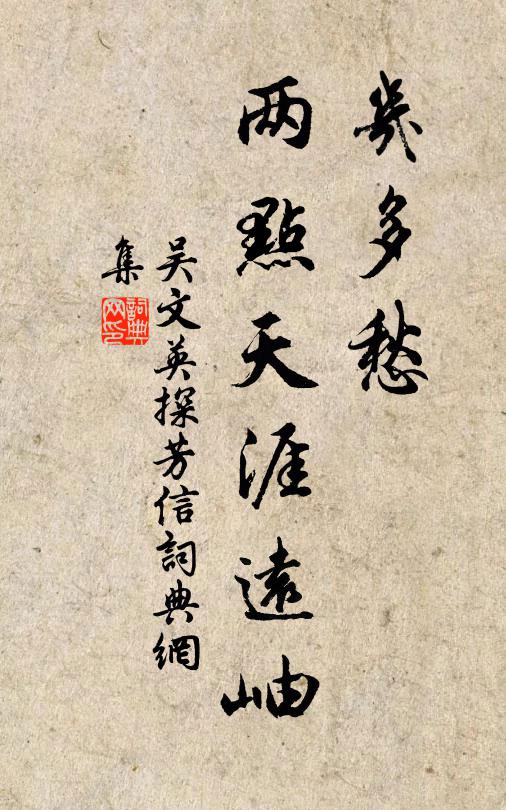 幾多愁
两點天涯遠岫
吴文英探芳信詞典網
集
詞典网印